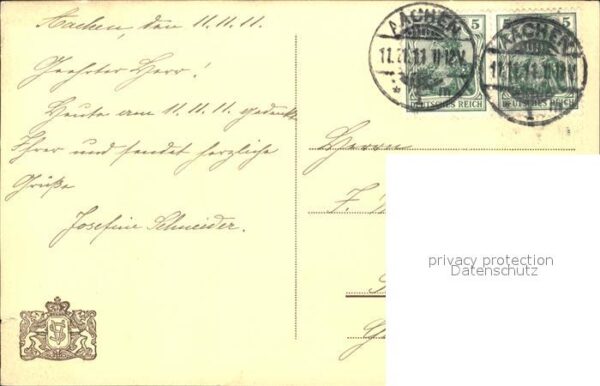 Aachen, den 11.11.11.
Geehrter Herr!
Heute am 11.11.11. gedenkt
Ihrer und sendet herzliche
Grüße
Josefine Schneider.
5 5
DEUTSCHES REICH DEUTSCHES REICH
AACHEN
11.11.11. 11-12 V.
AACHEN
11.11.11. 11-12 V.
1
Herrn
F.
privacy protection
Datenschutz